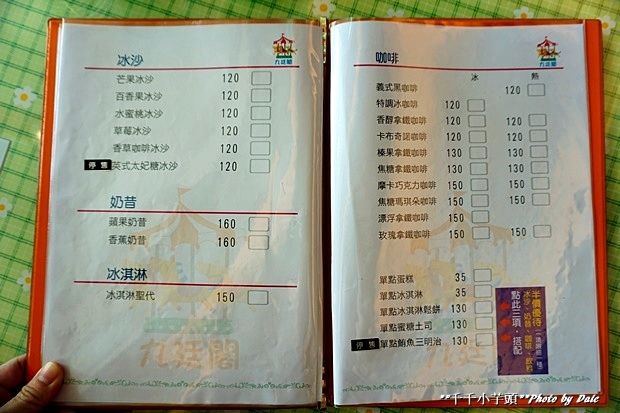 冰沙
九廷閣
芒果冰沙 120
百香果冰沙 120
水蜜桃冰沙 120
草莓冰沙 120
香草咖啡冰沙 120
停售 英式太妃糖冰沙 120
奶昔
蘋果奶昔 160
香蕉奶昔 160
冰淇淋
冰淇淋聖代 150
九廷閣
咖啡
九廷閣
冰 熱
義式黑咖啡 120
特調冰咖啡 120
香醇拿鐵咖啡 120 120
卡布奇諾咖啡 120 120
榛果拿鐵咖啡 130 130
焦糖拿鐵咖啡 130 130
摩卡巧克力咖啡 150 150
焦糖瑪琪朵咖啡 150 150
漂浮拿鐵咖啡 150
玫瑰拿鐵咖啡 150 150
單點蛋糕 35
單點冰淇淋 35
單點冰淇淋鬆餅 130
單點蜜糖土司 130
停售 單點鮪魚三明治 130
點此三項，搭配
冰沙、奶昔、咖啡、飲料
半價優待
九廷
**千千小芋頭**Photo by Dale